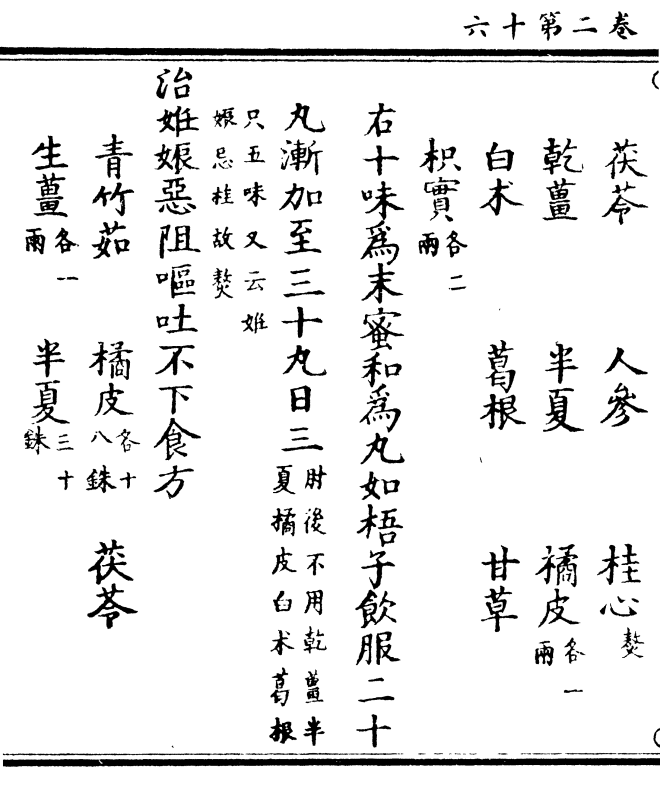 卷二第十六
茯苓 人參 桂心熬
乾薑 半夏 橘皮各一兩
白朮 葛根 甘草
枳實各二兩
右十味爲末蜜和爲丸如梧子飲服二十
丸漸加至三十丸日三肘後不用乾薑半夏橘皮白朮葛根
只五味又云姙娠忌桂故熬
治姙娠惡阻嘔吐不下食方
青竹茹 橘皮各十八銖 茯苓
生薑各一兩 半夏三十銖